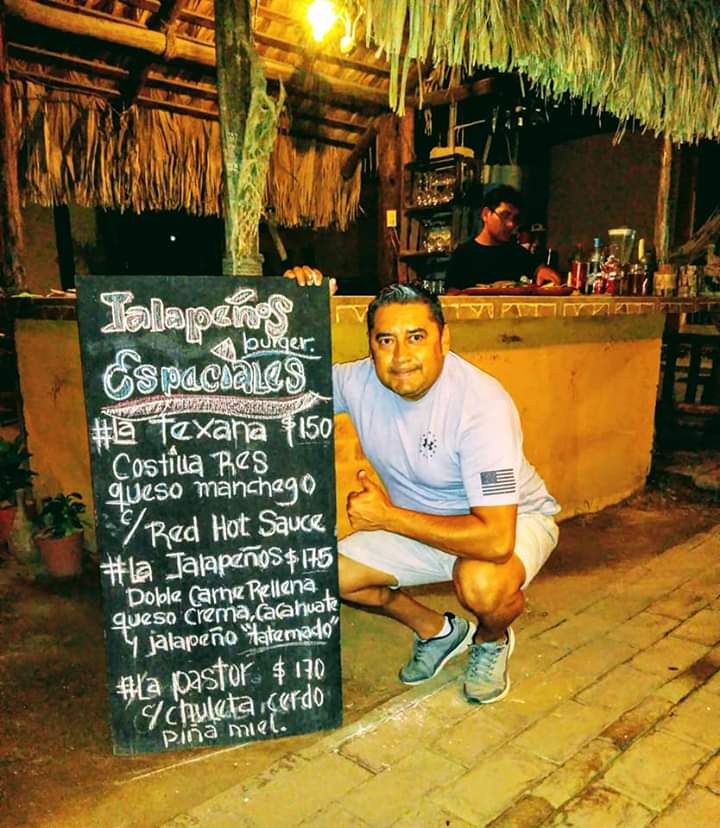 Jalapeños
burger.
Espaciales
#La Texana $150
Costilla Res
queso manchego
c/ Red Hot Sauce
#La Jalapeños $175
Doble Carne Rellena
queso Crema, Cacahuate
y jalapeño "tatemado"
#La pastor $170
c/ chuleta, cerdo
piña miel.